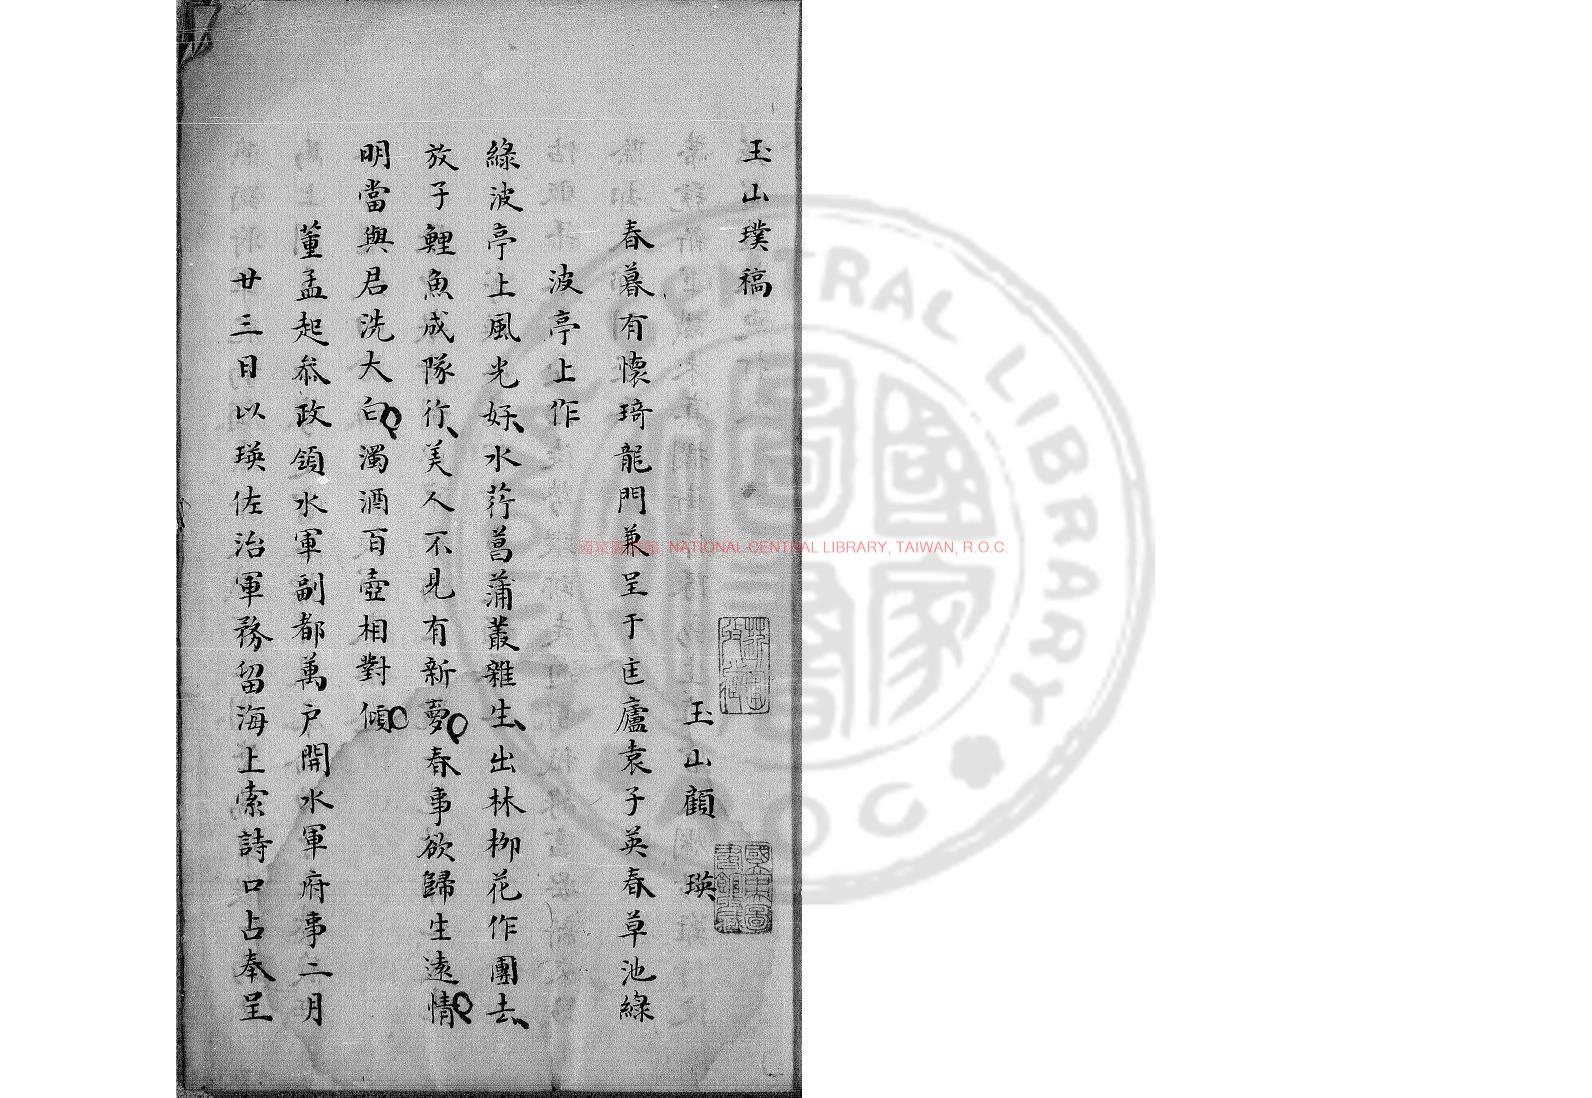 玉山璞稿
玉山顧瑛
春暮有懷琦龍門兼呈于匡廬袁子英春草池綠
波亭上作
綠波亭上風光好水荇菖蒲叢雜生出林柳花作團去
放子鯉魚成隊行美人不見有新夢春事欲歸生遠情
明當與君洗大白濁酒百壺相對傾
董孟起叅政領水軍副都萬户開水軍府事二月
廿三日以瑛佐治軍務留海上索詩口占奉呈
國家圖書館, NATIONAL CENTRAL LIBRARY, TAIWAN, R.O.C.
CENTRAL LIBRARY
國家圖書